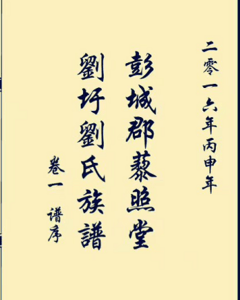 二零一六年丙申年
彭城郡藜照堂
劉圩劉氏族譜
卷一 谱序